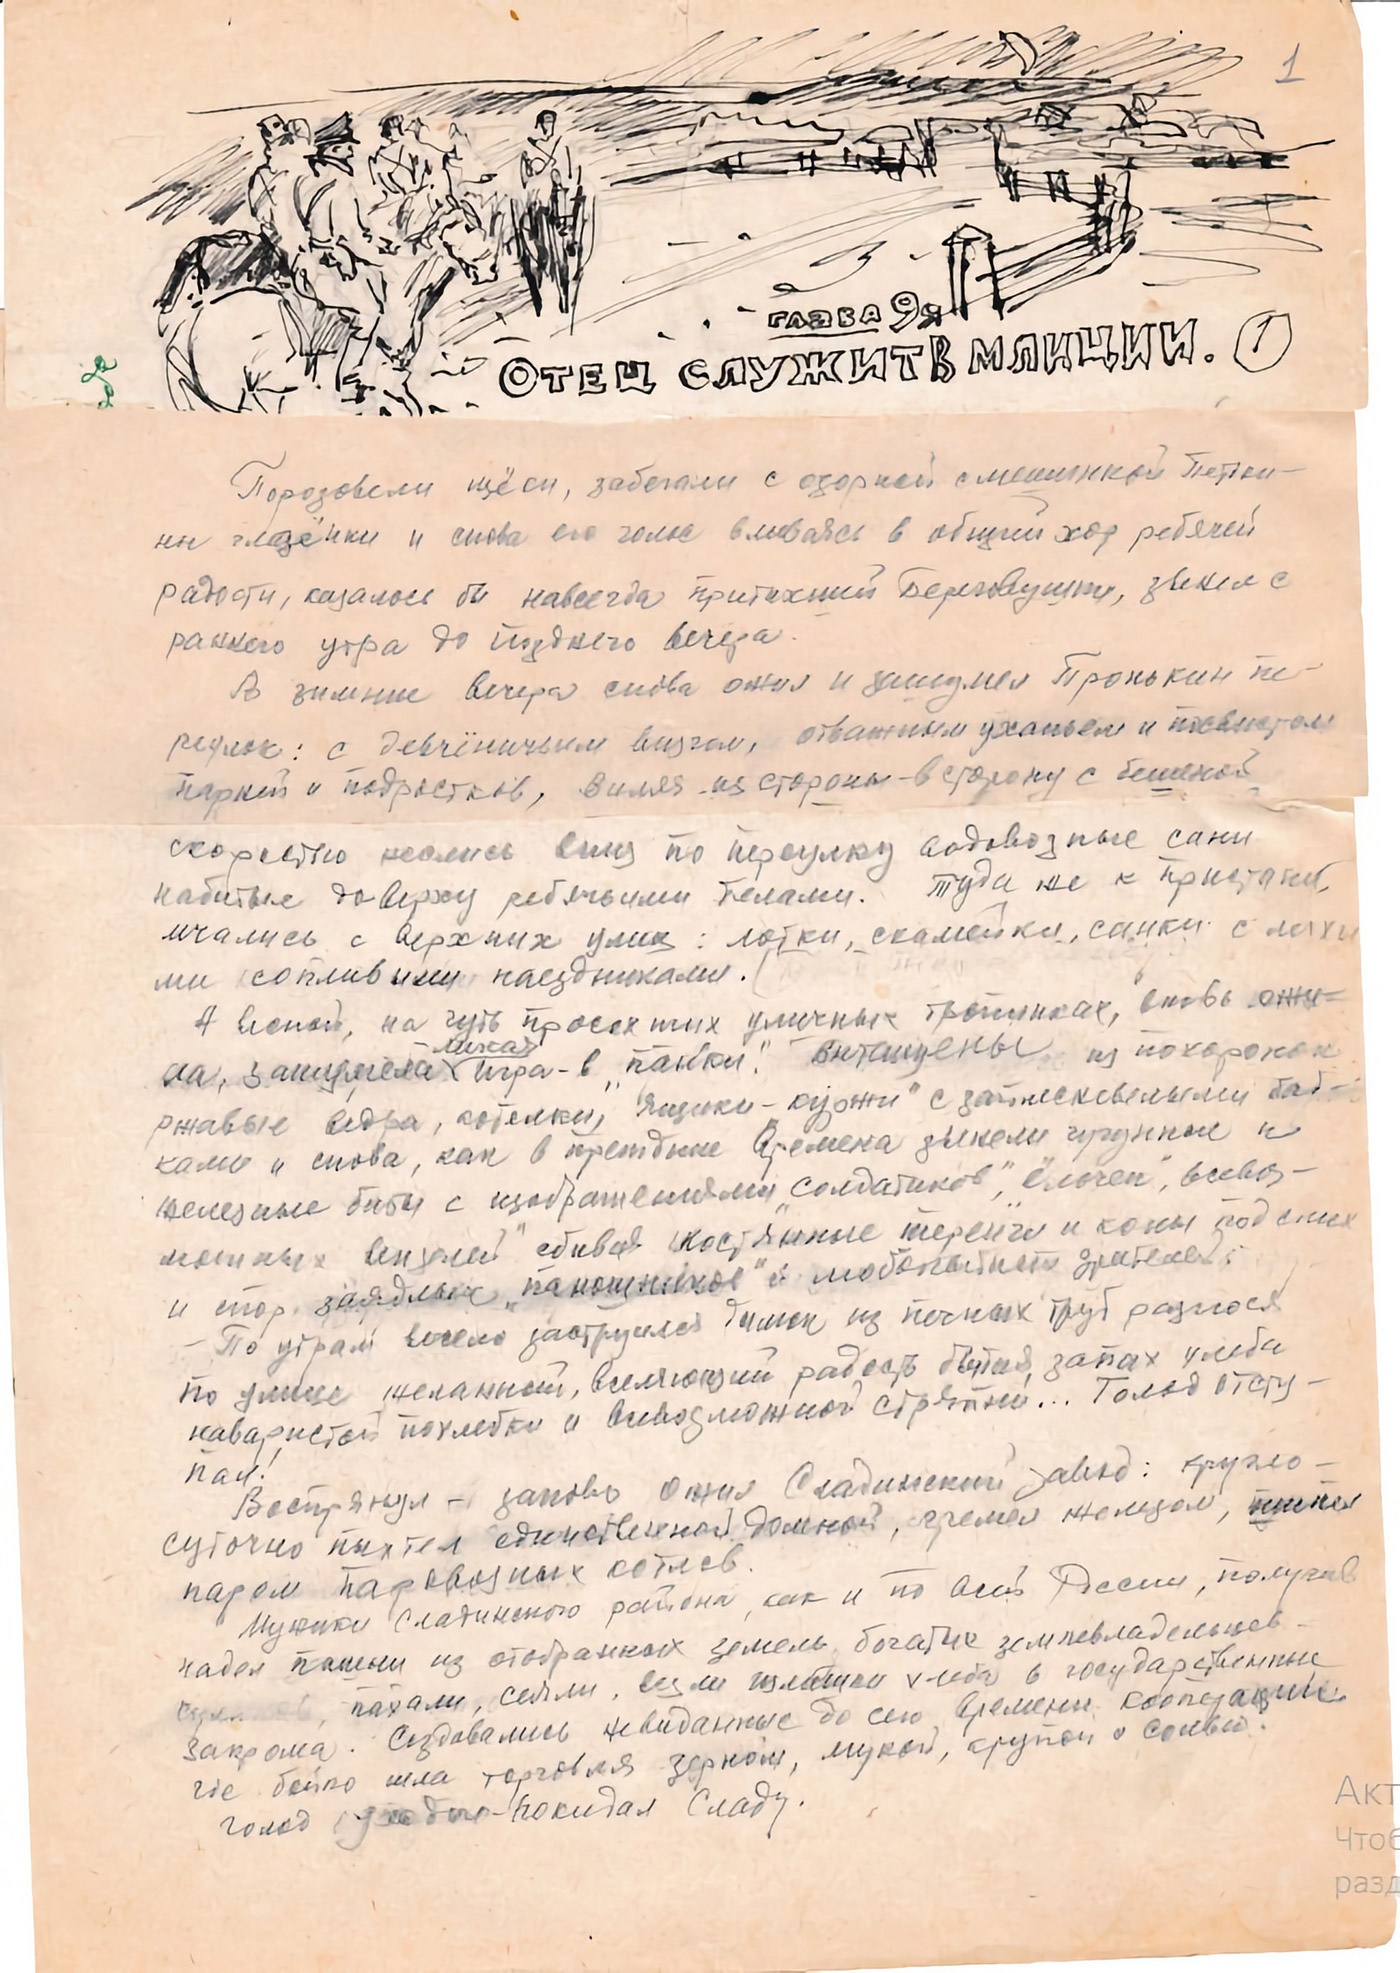 1
глава 9я
Отец служит в млиции. 1
Порозовели щёки, забегали с озорной смешинкой Петки-
ны глазёнки и снова его голос вливаясь в общий хор ребячей
радости, казалось бы навсегда притихший Береговушки, звенел с
раннего утра до позднего вечера.
А зимние вечера снова ожил и зашумел Пронькин пе-
реулок: с девчёничьим визгом, отважным уханьем и посвистом
парней и подростков, виляя из стороны-в сторону с бешеной
скоростью неслись вниз по переулку водовозные сани
набитые доверху ребячьими телами. Туда же к пристани,
мчались с верхних улиц: лотки, скамейки, санки с лихи
ми сопливыми наездниками.
А весной, на чуть просохших уличных тропинках, вновь ожи-
ла, зашумела лихая игра-в "панки". Вытащены из похоронок
ржавые вёдра, котелки, ящики- с заплесневелыми баб-
ками и снова, как в прежние времена звенели чугунные и
железные биты с изображениями "солдатиков", "ёлочек", всевоз-
можных вензелей" сбивая костянные и коны под смех
и спор заядлых "паношников" и любопытных зрителей.
- По утрам весело заструился дымок из печных труб разнося
по улице желанный, вселяющий радость бытия, запах хлеба
наваристой похлебки и всевозможной стряпни... Голод отсту-
пал!
Воспрянул - заново ожил Сладинский завод: кругло-
суточно пыхтел единственной домной, гремел железом,
паром паровозных котлов.
Мужики Сладинского района, как и по всей России, получив
надел пашни из отобранных земель богатых землевладельцев-
пахали, сеяли, везли излишки хлеба в государственные
закрома. Создавались невиданные до сего времени кооперации
где бойко шла торговля зерном, мукой, крупой и солью.
Голод покидал Сладу.
Акт
Чтоб
разд